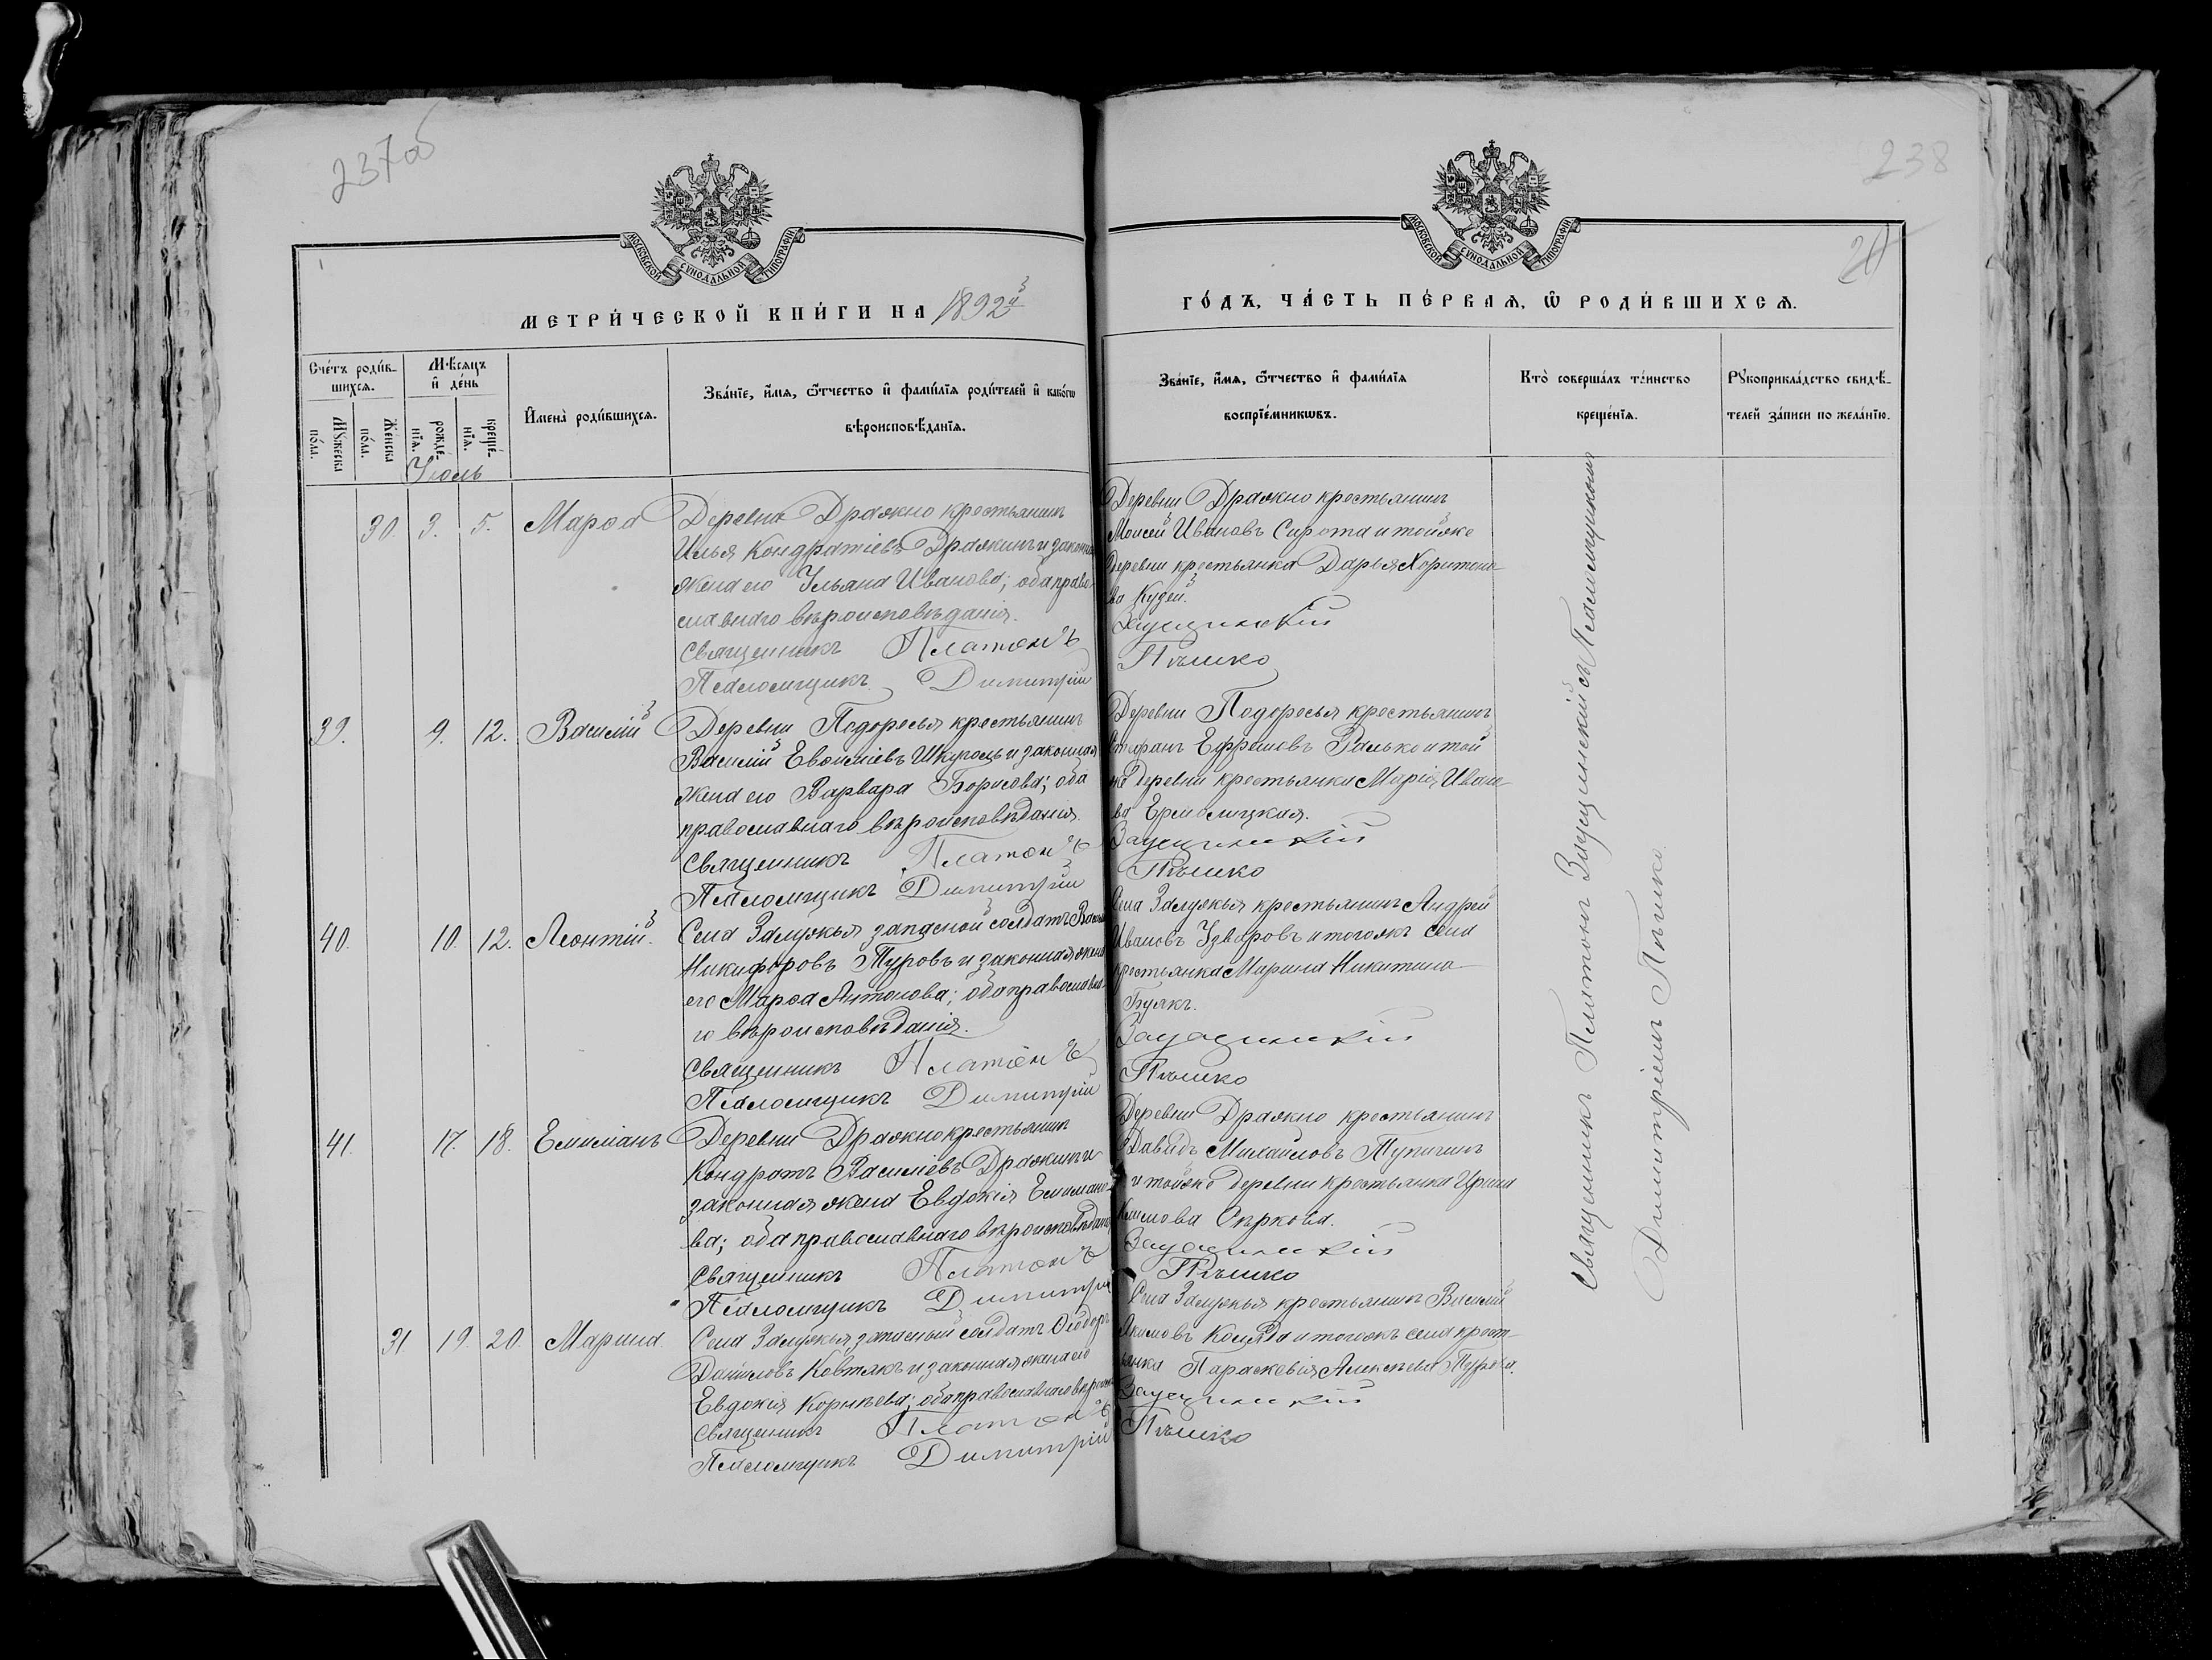 237об
238
МОСКОВСКОЙ СѴНОДАЛЬНОЙ ТИПОГРАФІИ
МОСКОВСКОЙ СѴНОДАЛЬНОЙ ТИПОГРАФІИ
МЕТРИ́ЧЕСКОЙ КНИ́ГИ НА 1892й
ГО́ДЪ, ЧА́СТЬ ПЕ́РВАѦ, Ѿ РОДИ́ВШИХСѦ.
Сче́тъ роди́в-
шихсѧ.
Мꙋ́жеска по́ла.
Же́нска по́ла.
Мѣ́сѧцъ и҆ де́нь
рожде́-нїѧ.
креще́-нїѧ.
И҆мена̀ роди́вшихсѧ.
Зва́нїе, и҆́мѧ, ѻ҆́тчество и҆ фами́лїѧ роди́телей и҆ како́гѡ
вѣроисповѣ́данїѧ.
Зва́нїе, и҆́мѧ, ѻ҆́тчество и҆ фами́лїѧ
воспрїе́мникѡвъ.
Кто̀ соверша́лъ та́инство
креще́нїѧ.
Рꙋкоприкла́дство свидѣ́-
телей за́писи по жела́нїю.
Іюль
30. 3. 5. Марѳа
Деревни Дражно крестьянинъ
Илья Кондратіевъ Дражинъ и законная
жена его Ульяна Иванова; оба право-
славнаго вѣроисповѣданія.
Священникъ Платонъ
Псаломщикъ Димитрій
Деревни Дражно крестьянинъ
Моисей Ивановъ Сирота и тойже
деревни крестьянка Дарья Харитоно-
ва Кудей.
Заусцинскій
Пѣшко
39. 9. 12. Василій
Деревни Подоресья крестьянинъ
Василій и законная
жена его Варвара Борисова; оба
православнаго вѣроисповѣданія.
Священникъ Платонъ
Псаломщикъ Димитрій
Деревни Подоресья крестьянинъ
Стефанъ Ефремовъ Ралько и той
же деревни крестьянка Марія Ивано-
ва Ермолицкая.
Заусцинскій
Пѣшко
40. 10. 12. Леонтій.
Села Залужья запасной солдатъ
Никифоровъ Туровъ и законная жена
его Марѳа Антонова; оба православна-
го вѣроисповѣданія.
Священникъ Платонъ
Псаломщикъ Димитрій
Села Залужья крестьянинъ Андрей
Ивановъ Узваровъ и тогожъ села
крестьянка Марина Никитина
Букъ.
Заусцинскій
Пѣшко
41. 17. 18. Емиліанъ
Деревни Дражно крестьянинъ
Кондратъ Василіевъ Дражинъ и
законная жена Евдокія Емиліано-
ва; оба православнаго вѣроисповѣданія
Священникъ Платонъ
Псаломщикъ Димитрій
Деревни Дражно крестьянинъ
Давидъ Михайловъ Тупичинъ
и тойже деревни крестьянка Ирина
Климова Сѣркова.
Заусцинскій
Пѣшко
31 19. 20. Марина.
Села Залужья, запасный солдатъ Ѳеодоръ
Даниловъ Ковтякъ и законная жена его
Евдокія Корнѣева; оба православнаго
Священникъ Платонъ
Псаломщикъ Димитрій
Села Залужья крестьянинъ Василій
Якимовъ Коляда и тогожъ села крест-
янка Параскевія Алексѣева Турова.
Заусцинскій
Пѣшко
Священникъ Платонъ Заусцинскій съ Псаломщикомъ
Димитріемъ Пѣшко.